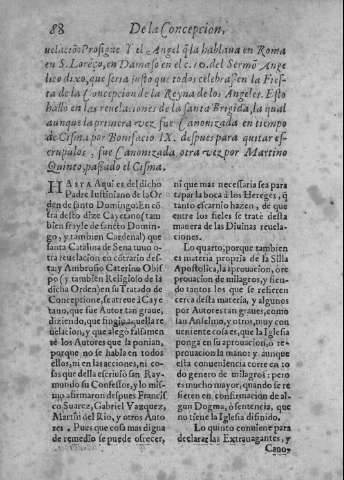 88 De la Concepcion,
uelacion Prosigue Y el Angel q̃ la hablaua en Roma
en S. Lorẽço, en Damaso en el c. 10. del Sermõ Ange
lico dixo, que seria justo que todos celebrassen la Fies-
ta de la Concepcion de la Reyna de los Angeles. Esto
hallo en las reuelaciones de la santa Brigida, la qual
aunque la primera vez fue Canonizada en tiempo
de Cisma por Bonifacio IX. despues para quitar es-
crupulos, fue Canonizada otra vez por Martino
Quinto, passado el Cisma.
HASTA Aqui es del dicho
Padre Iustiniano de la Or
den de santo Domingo. En cõ
tra desto dize Cayetano (tam
bien frayle de sancto Domin-
go, y tambien Cardenal) que
santa Catalina de Sena tuuo o-
tra reuelacion en cõtrario des-
ta, y Ambrosio Caterino Obis
po (y tambien Religioso de la
dicha Orden) en su Tratado de
Conceptione, se atreue à Caye
tano, que fue Autor tan graue,
diziendo, que fingio aquella re
uelacion, y que alegò falsamen
te los Autores que la ponian,
porque no se habla en todos
ellos, ni en las acciones, ni co-
sas que della escriuio san Ray-
mundo su Confessor, y lo mis-
mo afirmaron despues Francis
co Suarez, Gabriel Vazquez,
Martin del Rio, y otros Auto
res. Pues que cosa mas digna
de remedio se puede ofrecer,
ni que mas necessaria sea para
tapar la boca à los Hereges, q̃
tanto escarnio hazen, de que
entre los fieles se trate desta
manera de las Diuinas reuela-
ciones.
Lo quarto, porque tambien
es materia propria de la Silla
Apostolica, la aprouacion, ò re
prouacion de milagros, y sien-
do tantos los que se refieren
cerca desta materia, y algunos
por Autores tan graues, como
san Anselmo, y otros, muy con
ueniente cosa es, que la Iglesia
ponga en su aprouacion, o re-
prouacion la mano: y aunque
esta conueniencia corre en to
do genero de milagros: pero
es mucho mayor, quando se re
fieren en confirmacion de al-
gun Dogma, ò sentencia, que
no tiene la Iglesia difinido.
Lo quinto conuiene para
declarar las Extrauagantes, y
Cano-